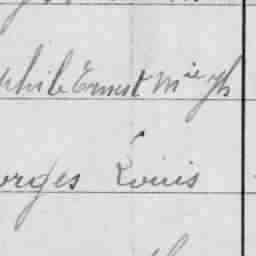 phile Ernest Mie Jh
orges Louis